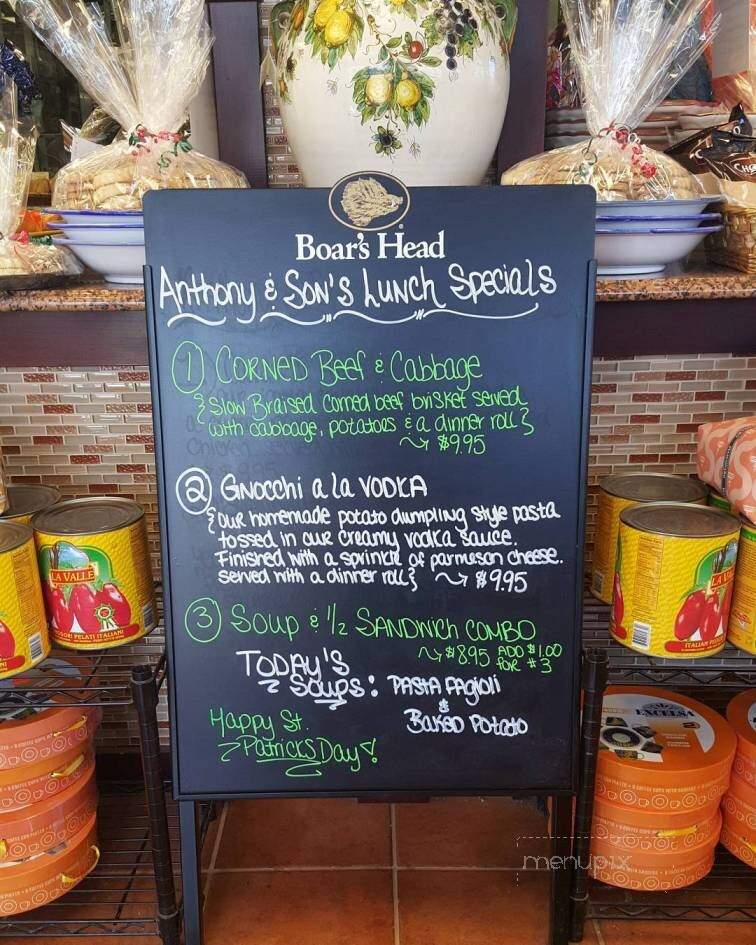 Boar's Head
Anthony & Son's Lunch Specials
① Corned Beef & Cabbage
{Slow Braised corned beef brisket served
with cabbage, potatoes & a dinner roll}
~> $9.95
② Gnocchi a la VODKA
{our homemade potato dumpling style pasta
tossed in our creamy vodka sauce.
Finished with a sprinkle of parmesan cheese.
served with a dinner roll} ~> $9.95
③ Soup & 1/2 SANDWICH COMBO
~> $8.95 ADD $1.00
FOR #3
TODAY'S
Soups: PASTA FAGIOLI
&
BAKED POTATO
Happy St.
Patricks Day!
LA VALLE
POMODORI PELATI ITALIANI
LA VALLE
ITALIAN
EXCELSA
menupix